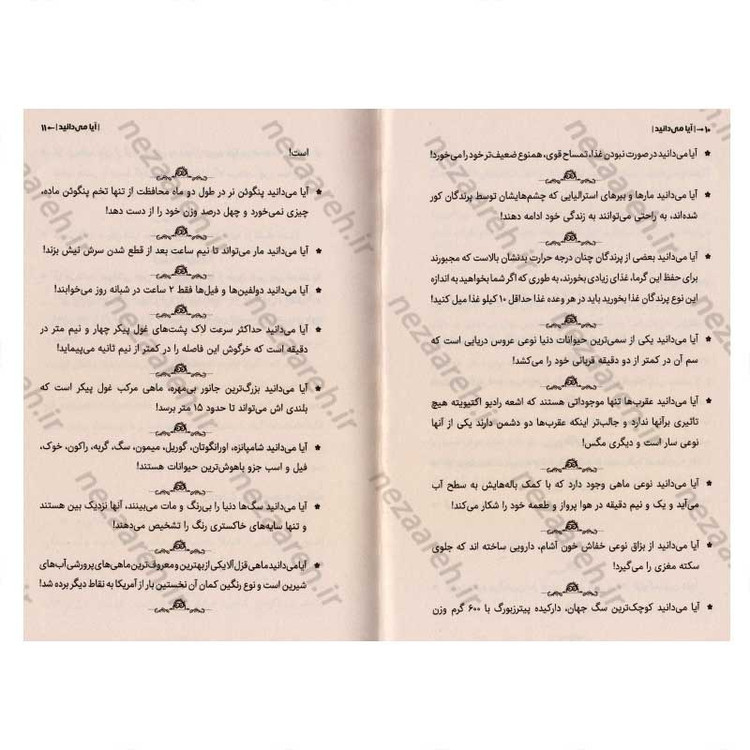 ۱۰ → | آیا می‌دانید |
★ آیا می‌دانید در صورت نبودن غذا، تمساح قوی، همنوع ضعیف‌تر خود را می‌خورد!
★ آیا می‌دانید مارها و ببرهای استرالیایی که چشم‌هایشان توسط پرندگان کور
شده‌اند، به راحتی می‌توانند به زندگی خود ادامه دهند!
★ آیا می‌دانید بعضی از پرندگان چنان درجه حرارت بدنشان بالاست که مجبورند
برای حفظ این گرما، غذای زیادی بخورند، به طوری که اگر شما بخواهید به اندازه
این نوع پرندگان غذا بخورید باید در هر وعده غذا حداقل ۱۰ کیلو غذا میل کنید!
★ آیا می‌دانید یکی از سمی‌ترین حیوانات دنیا نوعی عروس دریایی است که
سم آن در کمتر از دو دقیقه قربانی خود را می‌کشد!
★ آیا می‌دانید عقرب‌ها تنها موجوداتی هستند که اشعه رادیو اکتیویته هیچ
تاثیری برآنها ندارد و جالب‌تر اینکه عقرب‌ها دو دشمن دارند یکی از آنها
نوعی سار است و دیگری مگس!
★ آیا می‌دانید نوعی ماهی وجود دارد که با کمک باله‌هایش به سطح آب
می‌آید و یک و نیم دقیقه در هوا پرواز و طعمه خود را شکار می‌کند!
★ آیا می‌دانید از بزاق نوعی خفاش خون آشام، دارویی ساخته اند که جلوی
سکته مغزی را می‌گیرد!
★ آیا می‌دانید کوچک‌ترین سگ جهان، دارکیده پیترزبورگ با ۶۰۰ گرم وزن
| آیا می‌دانید | ← ۱۱
است!
★ آیا می‌دانید پنگوئن نر در طول دو ماه محافظت از تنها تخم پنگوئن ماده،
چیزی نمی‌خورد و چهل درصد وزن خود را از دست دهد!
★ آیا می‌دانید مار می‌تواند تا نیم ساعت بعد از قطع شدن سرش نیش بزند!
★ آیا می‌دانید دولفین‌ها و فیل‌ها فقط ۲ ساعت در شبانه روز می‌خوابند!
★ آیا می‌دانید حداکثر سرعت لاک پشت‌های غول پیکر چهار و نیم متر در
دقیقه است که خرگوش این فاصله را در کمتر از نیم ثانیه می‌پیماید!
★ آیا می‌دانید بزرگ‌ترین جانور بی‌مهره، ماهی مرکب غول پیکر است که
بلندی اش می‌تواند تا حدود ۱۵ متر برسد!
★ آیا می‌دانید شامپانزه، اورانگوتان، گوریل، میمون، سگ، گربه، راکون، خوک،
فیل و اسب جزو باهوش‌ترین حیوانات هستند!
★ آیا می‌دانید سگ‌ها دنیا را بی‌رنگ و مات می‌بینند، آنها نزدیک بین هستند
و تنها سایه‌های خاکستری رنگ را تشخیص می‌دهند!
★ آیا می‌دانید ماهی قزل آلا یکی از بهترین و معروف‌ترین ماهی‌های پرورشی آب‌های
شیرین است و نوع رنگین کمان آن نخستین بار از آمریکا به نقاط دیگر برده شد!
nezaareh.ir
nezaareh.ir
nezaareh.ir
nezaareh.ir
nezaareh.ir
nezaareh.ir